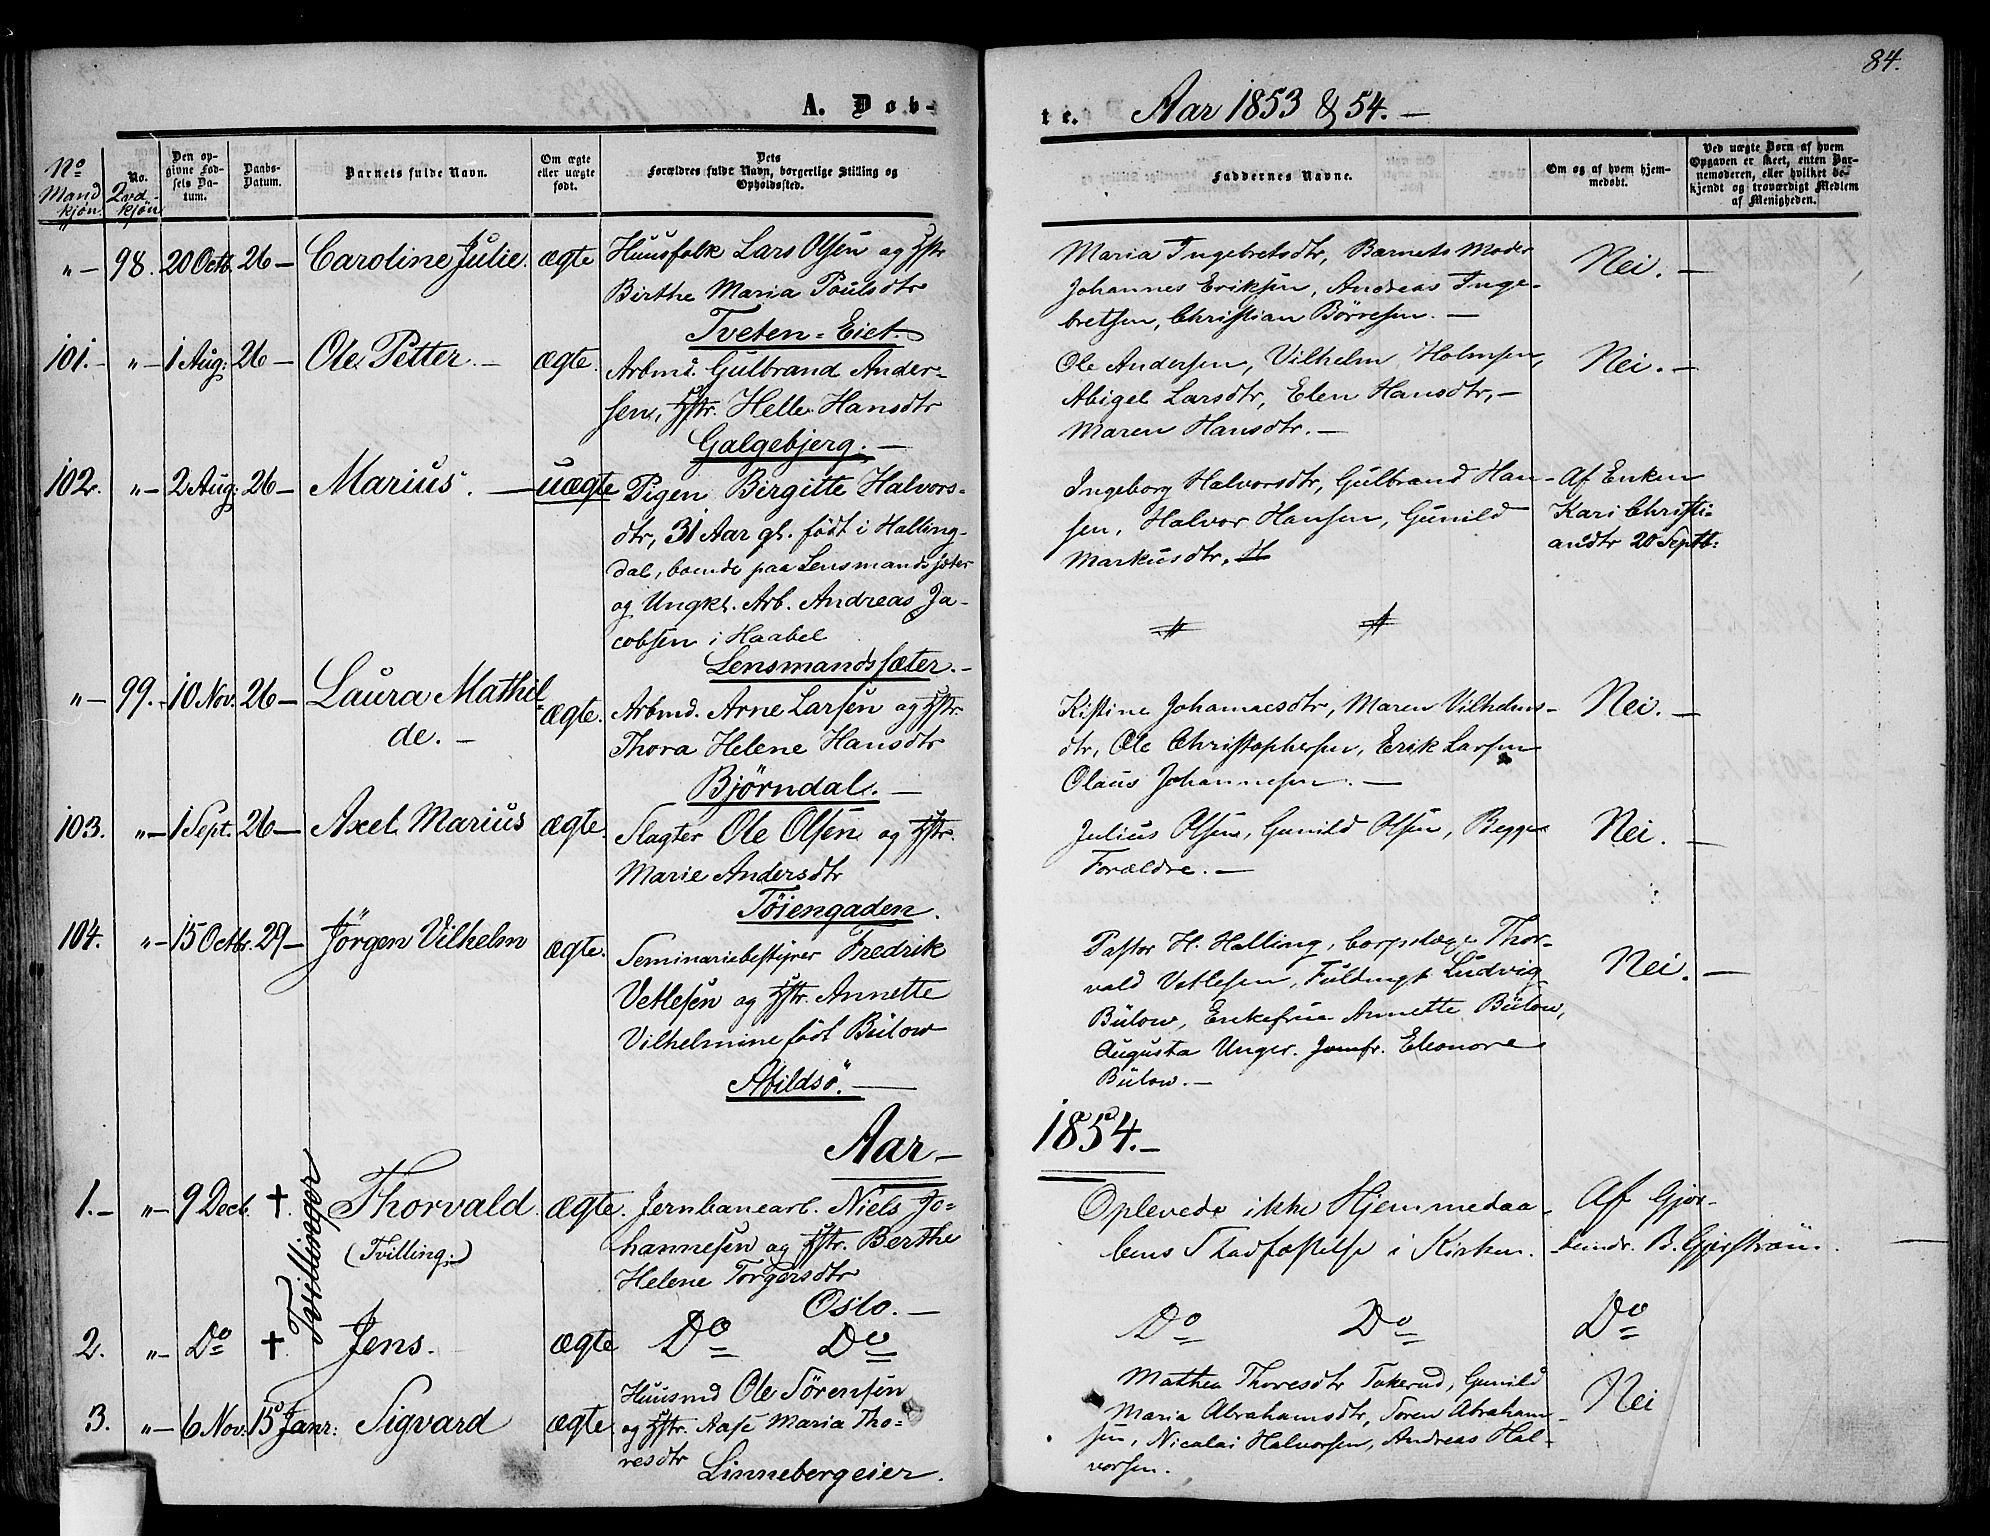 84.
A. Døb-
te.
Aar 1853 & 54. —
No
Mand
kjön
No.
Qvd.
kjön
Den op-
givne Fød-
sels Da-
tum.
Daabs-
Datum.
Barnets fulde Navn.
Om ægte
eller uægte
født.
Dets
Forældres fulde Navn, borgerlige Stilling og
Opholdssted.
Faddernes Navne.
Om og af hvem hjem-
medøbt.
Ved uægte Børn af hvem
Opgaven er skeet, enten Bar-
nemoderen, eller hvilket be-
kjendt og troværdigt Medlem
af Menigheden.
" — 98. 20 Octb. 26 — Caroline Julie. ægte
Huusfolk Lars Olsen og Hstr
Birthe Maria Poulsdtr
Tveten-Eiet.
Maria Ingebretsdtr, Barnets Moder
Johannes Eriksen, Andreas Inge-
bretsen, Christian Börresen. —
Nei. —
101. — " — 1 Aug: 26 — Ole Petter. — ægte.
Arbmd. Gulbrand Ander-
sen, Hstr. Helle Hansdtr
Galgebjerg. —
Ole Andersen, Vilhelm Holmsen,
Abigel Larsdtr, Elen Hansdtr, —
Maren Hansdtr. —
Nei. —
102. " — 2 Aug: 26 — Marius. — uægte
Pigen Birgitte Halvors-
dtr, 31 Aar gl. født i Halling-
dal, boende paa Lensmandssæter
og Ungkl. Arb. Andreas Ja-
cobsen i Haabel
Lensmandssæter. —
Ingeborg Halvorsdtr, Gulbrand Han-
sen, Halvor Hansen, Gunild
Markusdtr.
Af Enken
Kari Christi-
andtr 20 Septb:
" — 99. — 10 Nov. 26 — Laura Mathil-
de. —
ægte.
Arbmd. Arne Larsen og Hstr.
Thora Helene Hansdtr
Bjørndal. —
Kistine Johannesdtr, Maren Vilhelms-
dtr, Ole Christophersen, Erik Larsen
Olaus Johannesen. —
Nei. —
103. " — 1 Sept. 26 — Axel Marius ægte.
Slagter Ole Olsen og Hstr.
Marie Andersdtr
Töiengaden.
Julius Olsen, Gunild Olsen, Begge
Forældre. —
Nei. —
104. " — 15 Octbr. 29 — Jörgen Vilhelm ægte.
Seminariebestyrer Fredrik
Vetlesen og Hstr. Annette
Vilhelmine født Bülow
Abildsö. —
Pastor H. Halling, Corpslæge Thor-
vald Vetlesen, Fuldmgt Ludvig
Bülow, Enkefrue Annette Bülow,
Augusta Unger. Jomfr. Eleonore
Bülow. —
Nei. —
Aar — 1854. —
Tvillinger
1. — " — 9 Decb. †. Thorvald. ægte.
(Tvilling:)
Jernbanearb. Niels Jo-
hannesen og Hstr. Berthe
Helene Torgersdtr
Oslo. —
Oplevede ikke Hjemmedaa-
bens Stadfæstelse i Kirken.
Af Gjor-
demdr. B. Gjerström.
2. " — Do †. Jens. ægte Do Do
Do Do Do
3. " — 6 Nov: 15 Janr: Sigvard ægte.
Huusmd Ole Sörensen
og Hstr Aase Maria Tho-
resdtr
Linnebergeier.
Mathea Thoresdtr Takerud, Gunild
Maria Abrahamsdtr, Sören Abraham-
sen, Nicolai Halvorsen, Andreas Hal-
vorsen.
Nei